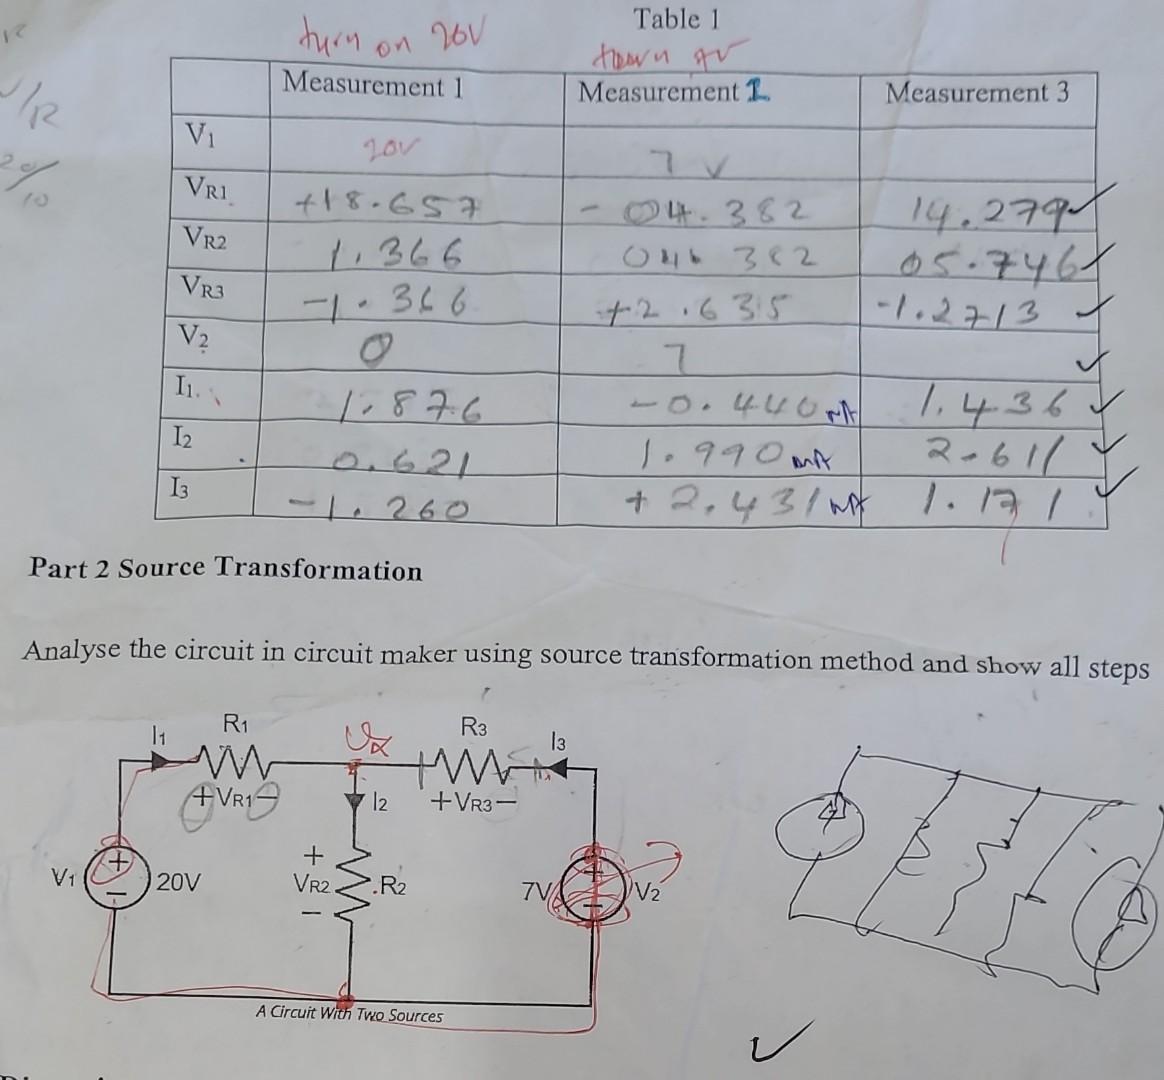 Table 1
turn on 20V
turn 7V
Measurement 1 Measurement 2 Measurement 3
V1 20V 7 V
VR1 +18.657 - 04.382 14.279 ✓
VR2 1.366 04.382 05.746 ✓
VR3 -1.366 +2.635 -1.2713 ✓
V2 0 7 ✓
I1 1.876 -0.440 mA 1.436 ✓
I2 0.621 1.990 mA 2.611 ✓
I3 -1.260 + 2.431 mA 1.171 ✓
/R
20/10
Part 2 Source Transformation
Analyse the circuit in circuit maker using source transformation method and show all steps
I1 R1 Vx R3 I3
+VR1- I2 +VR3-
V1 + - 20V + VR2 - R2 7V + - V2
A Circuit With Two Sources
✓